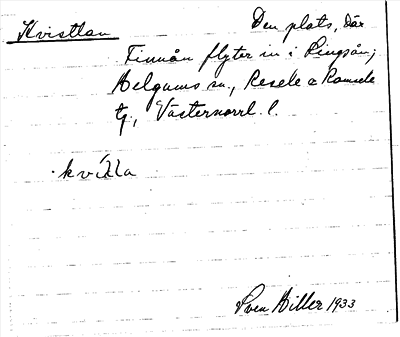 Kvistlan Den plats, där
Finnån flyter in i Lingån;
Helgums sn., Resele o Ramsele
tg., Västernorrl. l.
kvílla
Sven Hiller 1933